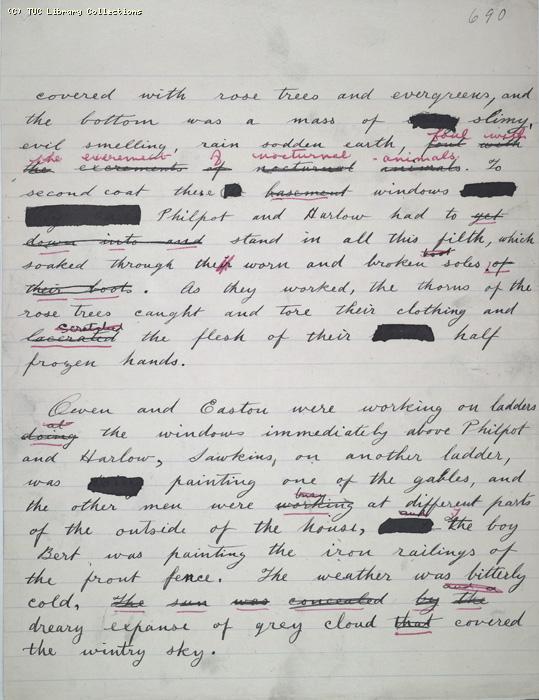 (C) TUC Library Collections
690
covered with rose trees and evergreens, and
the bottom was a mass of slimy,
evil smelling rain sodden earth, foul with
foul with
the excrement of nocturnal animals.
the excrements of nocturnal animals. To
second coat these basement windows
Philpot and Harlow had to get
down into and stand in all this filth, which
soaked through the worn and broken soles of
boot
their boots. As they worked, the thorns of the
rose trees caught and tore their clothing and
scratched
lacerated the flesh of their half
frozen hands.
Owen and Easton were working on ladders
at
doing the windows immediately above Philpot
and Harlow, Sawkins, on another ladder,
was painting one of the gables, and
busy
the other men were working at different parts
and
of the outside of the house, the boy
Bert was painting the iron railings of
the front fence. The weather was bitterly
and a
cold, The sun was concealed by the
dreary expanse of grey cloud that covered
the wintry sky.